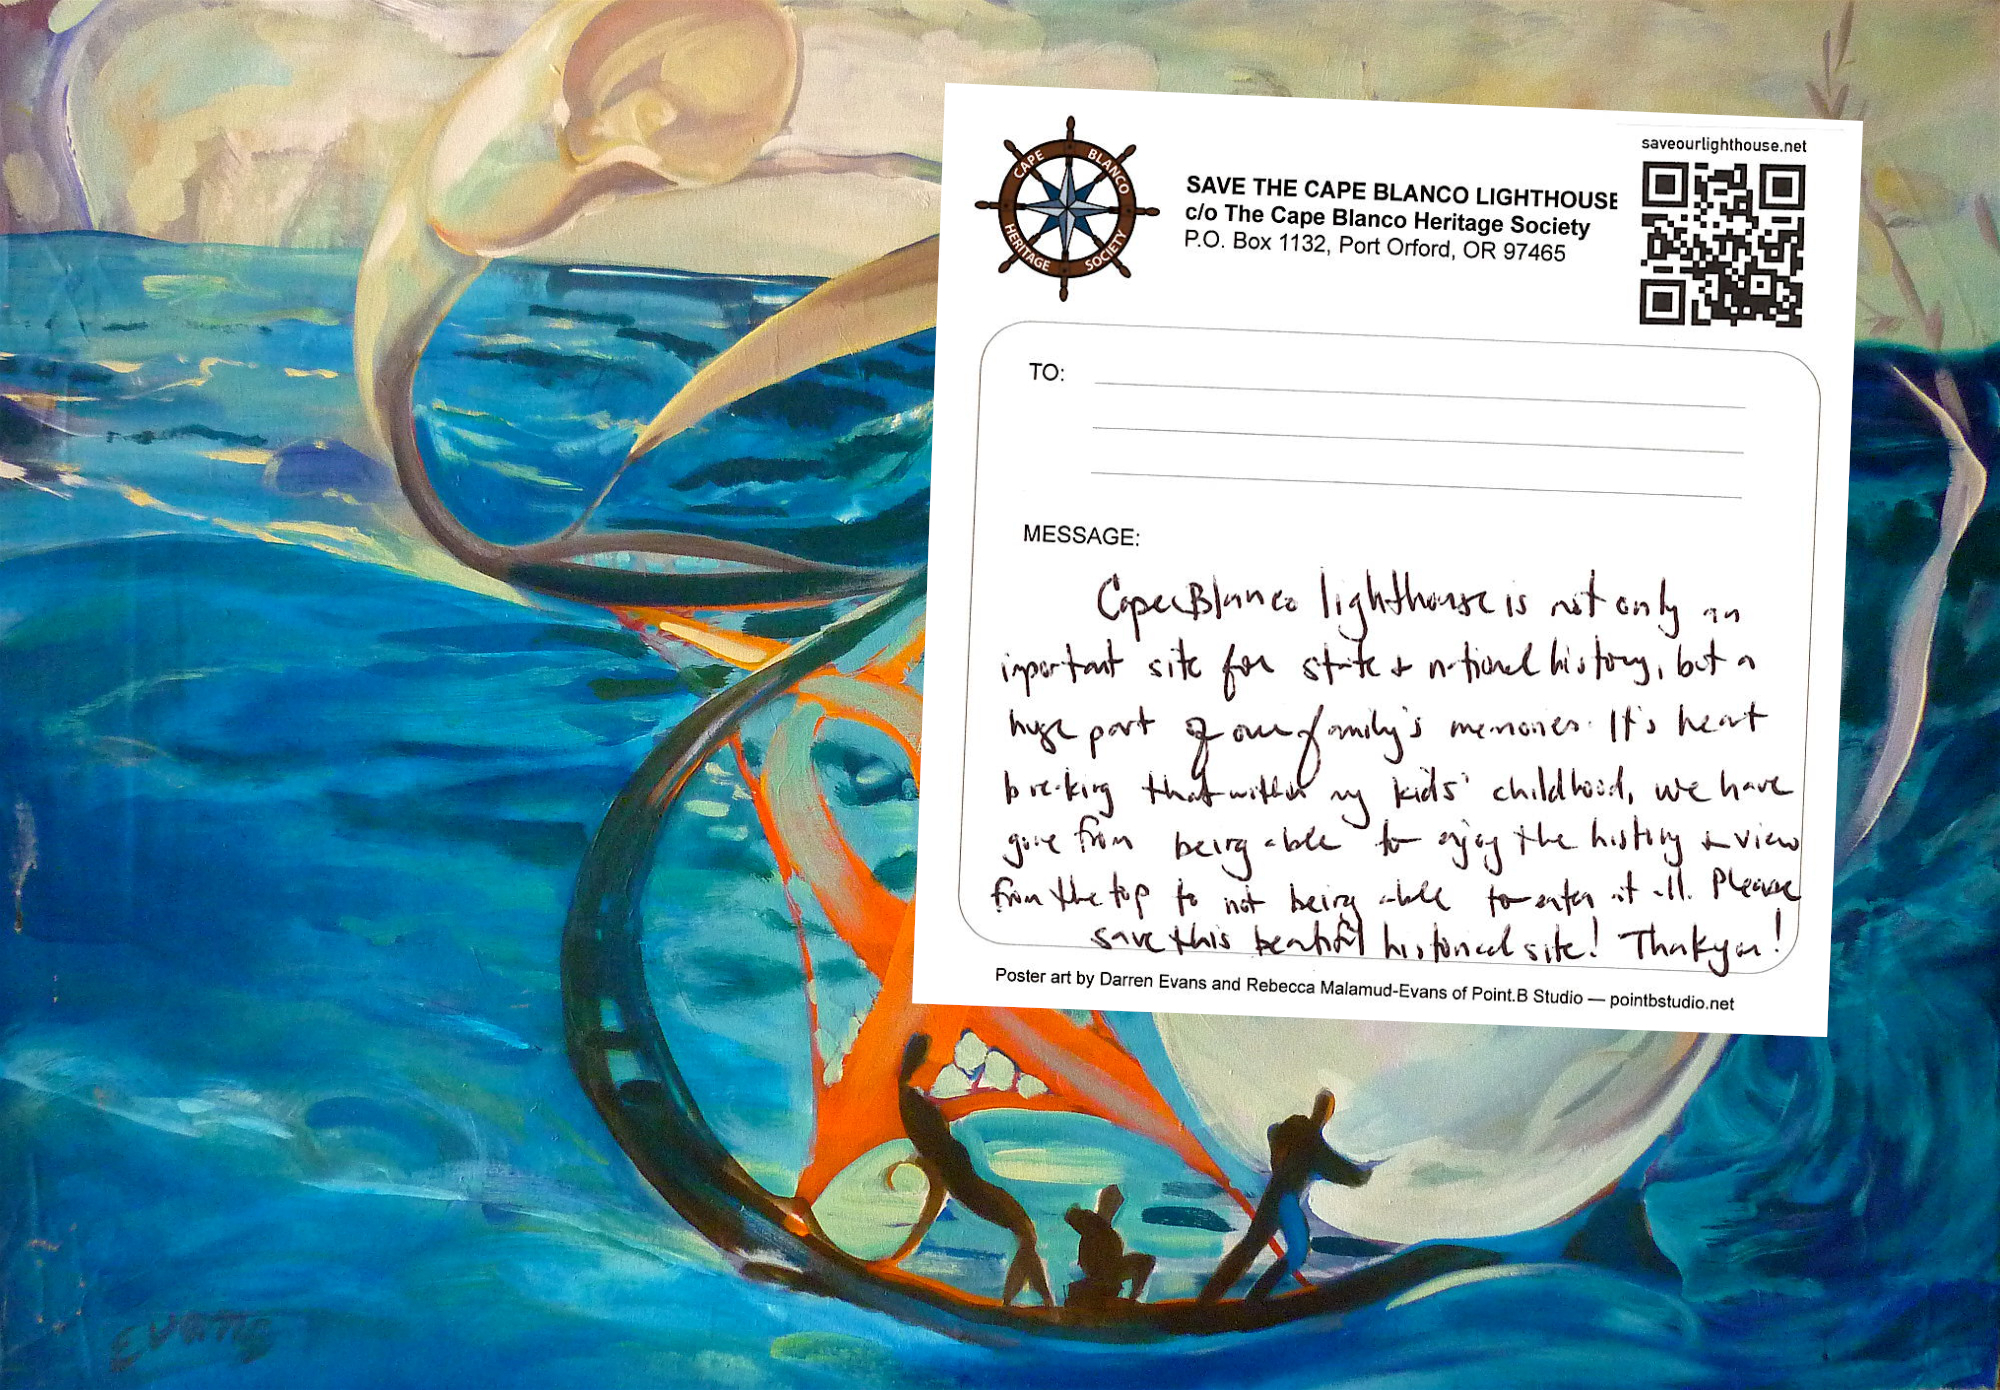 saveourlighthouse.net
CAPE BLANCO
HERITAGE SOCIETY
SAVE THE CAPE BLANCO LIGHTHOUSE
c/o The Cape Blanco Heritage Society
P.O. Box 1132, Port Orford, OR 97465
TO:
MESSAGE:
Cape Blanco lighthouse is not only an
important site for state & national history, but a
huge part of our family's memories. It's heart
breaking that within my kids' childhood, we have
gone from being able to enjoy the history & view
from the top to not being able to enter at all. Please
save this beautiful historical site! Thank you!
Poster art by Darren Evans and Rebecca Malamud-Evans of Point.B Studio — pointbstudio.net
Evans